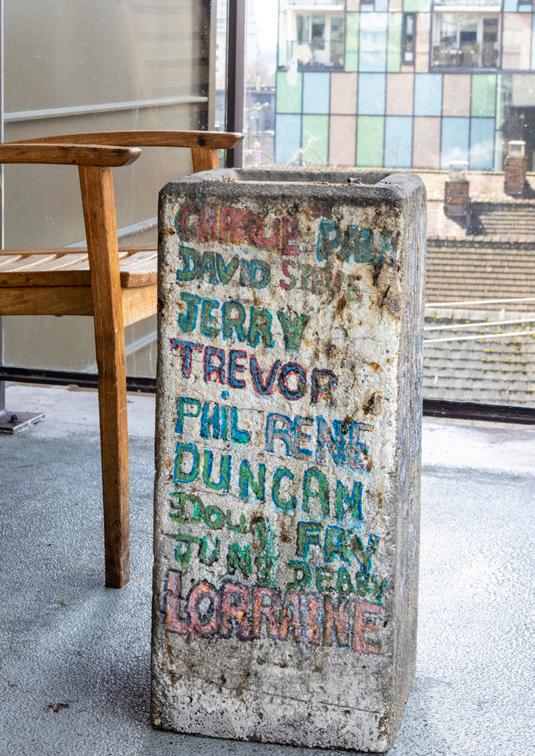 CHARLIE PAUL
DAVID STEVE
JERRY
TREVOR
PHIL RENE
DUNCAN
DOUG FAY
JUNE DEREK
LORRAINE